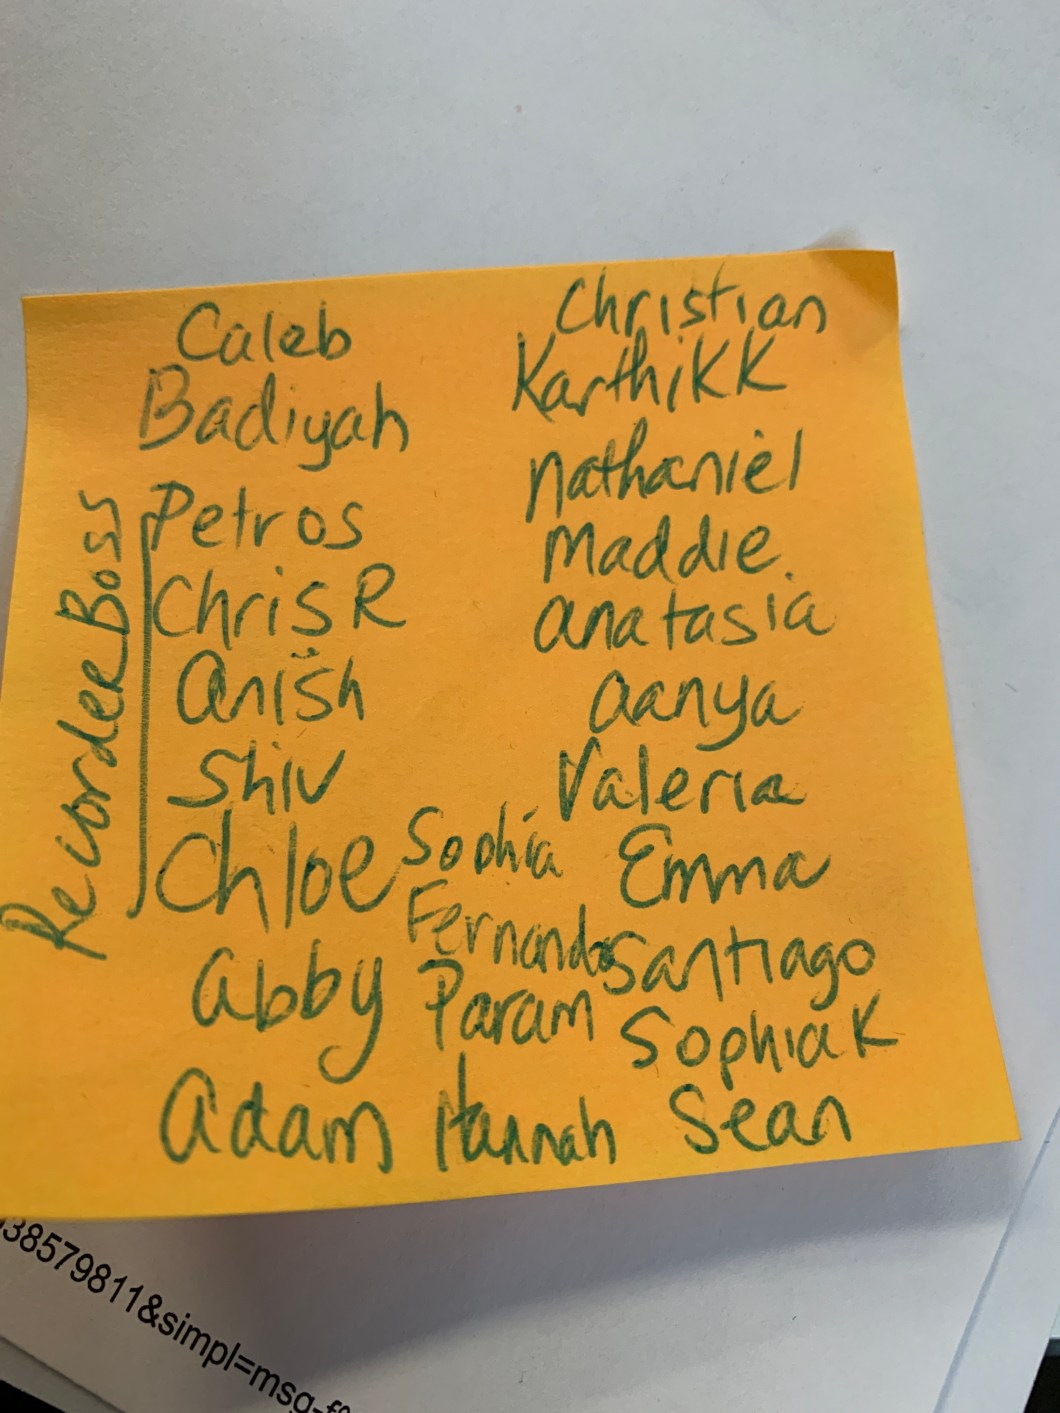 Caleb
Badiyah
Recorder Boss
Petros
Chris R
anish
Shiv
Chloe
abby
adam
Sophia
Fernando
Param
Hannah
Christian
KarthiKK
nathaniel
maddie
anatasia
aanya
Valeria
Emma
Santiago
Sophia K
Sean
38579811&simpl=msg-f